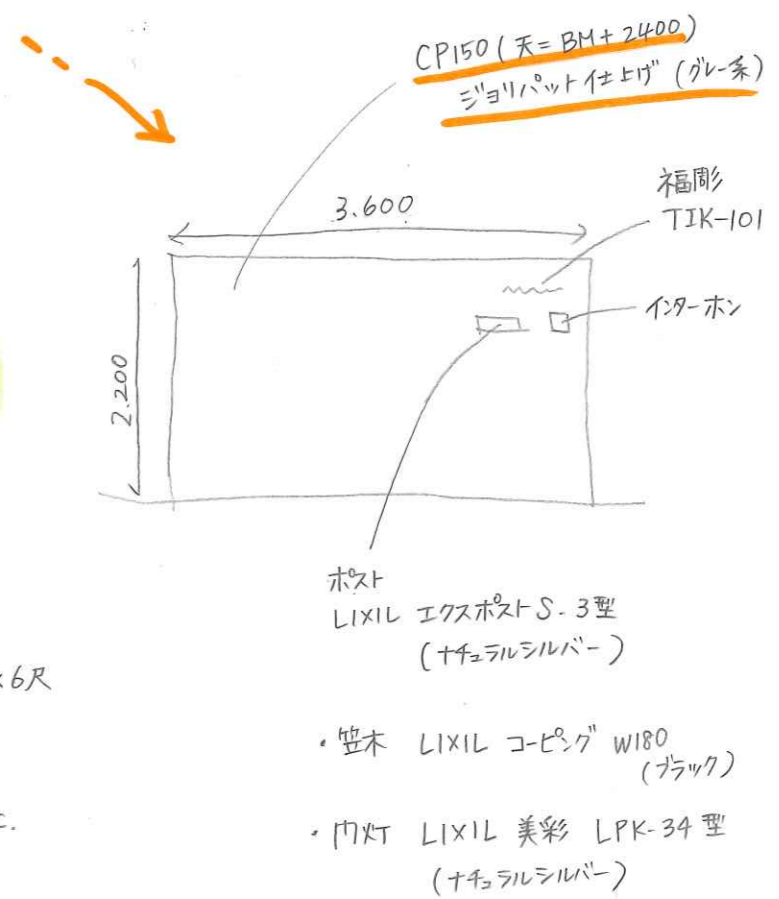 CP150(天=BM+2400)
ジョリパット仕上げ(グレー系)
3.600
福彫
TIK-101
インターホン
2.200
ポスト
LIXIL エクスポストS-3型
(ナチュラルシルバー)
×6尺
・笠木 LIXIL コーピング W180
(ブラック)
・門灯 LIXIL 美彩 LPK-34型
(ナチュラルシルバー)